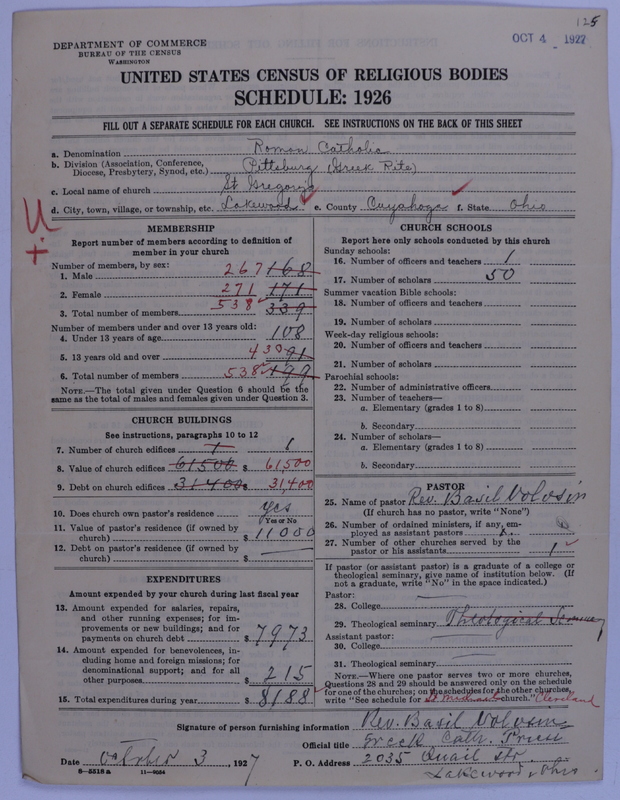 125
OCT 4 1927
DEPARTMENT OF COMMERCE
BUREAU OF THE CENSUS
WASHINGTON
UNITED STATES CENSUS OF RELIGIOUS BODIES
SCHEDULE: 1926
FILL OUT A SEPARATE SCHEDULE FOR EACH CHURCH. SEE INSTRUCTIONS ON THE BACK OF THIS SHEET
a. Denomination Roman Catholic
b. Division (Association, Conference, Diocese, Presbytery, Synod, etc.) Pittsburg (Greek Rite)
c. Local name of church St Gregory's
d. City, town, village, or township, etc. Lakewood e. County Cuyahoga f. State Ohio
U
+
MEMBERSHIP
Report number of members according to definition of
member in your church
Number of members, by sex:
1. Male 267 168
2. Female 271 171
3. Total number of members 538 339
Number of members under and over 13 years old:
4. Under 13 years of age 108
5. 13 years old and over 430 91
6. Total number of members 538 199
NOTE.—The total given under Question 6 should be the
same as the total of males and females given under Question 3.
CHURCH BUILDINGS
See instructions, paragraphs 10 to 12
7. Number of church edifices 1 1
8. Value of church edifices 61500 $ 61,500
9. Debt on church edifices 31400 $ 31,400
10. Does church own pastor's residence yes
Yes or No
11. Value of pastor's residence (if owned by
church) $ 11000
12. Debt on pastor's residence (if owned by
church) $
EXPENDITURES
Amount expended by your church during last fiscal year
13. Amount expended for salaries, repairs,
and other running expenses; for im-
provements or new buildings; and for
payments on church debt $ 7973
14. Amount expended for benevolences, in-
cluding home and foreign missions; for
denominational support; and for all
other purposes $ 215
15. Total expenditures during year $ 8188
CHURCH SCHOOLS
Report here only schools conducted by this church
Sunday schools:
16. Number of officers and teachers 1
17. Number of scholars 50
Summer vacation Bible schools:
18. Number of officers and teachers
19. Number of scholars
Week-day religious schools:
20. Number of officers and teachers
21. Number of scholars
Parochial schools:
22. Number of administrative officers
23. Number of teachers—
a. Elementary (grades 1 to 8)
b. Secondary
24. Number of scholars—
a. Elementary (grades 1 to 8)
b. Secondary
PASTOR
25. Name of pastor Rev. Basil Volosin
(If church has no pastor, write "None")
26. Number of ordained ministers, if any, em-
ployed as assistant pastors
27. Number of other churches served by the
pastor or his assistants 1
If pastor (or assistant pastor) is a graduate of a college or
theological seminary, give name of institution below. (If
not a graduate, write "No" in the space indicated.)
Pastor:
28. College
29. Theological seminary Theological Seminary
Assistant pastor:
30. College
31. Theological seminary
NOTE.—Where one pastor serves two or more churches,
Questions 28 and 29 should be answered only on the schedule
for one of the churches; on the schedules for the other churches,
write "See schedule for St Michael's church." Cleveland
Signature of person furnishing information Rev. Basil Volosin
Official title Greek Cath. Priest
Date October 3, 1927 P. O. Address 2035 Quail str.
8—5518 a 11—9054 Lakewood, Ohio